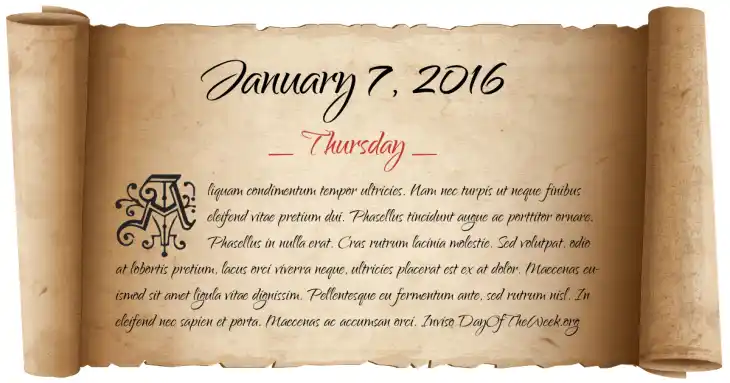 January 7, 2016
— Thursday —
Aliquam condimentum tempor ultricies. Nam nec turpis ut neque finibus
eleifend vitae pretium dui. Phasellus tincidunt augue ac porttitor ornare.
Phasellus in nulla erat. Cras rutrum lacinia molestie. Sed volutpat, odio
at lobortis pretium, lacus orci viverra neque, ultricies placerat est ex at dolor. Maecenas eu-
ismod sit amet ligula vitae dignissim. Pellentesque eu fermentum ante, sed rutrum nisl. In
eleifend nec sapien et porta. Maecenas ac accumsan orci. Inviso DayOfTheWeek.org